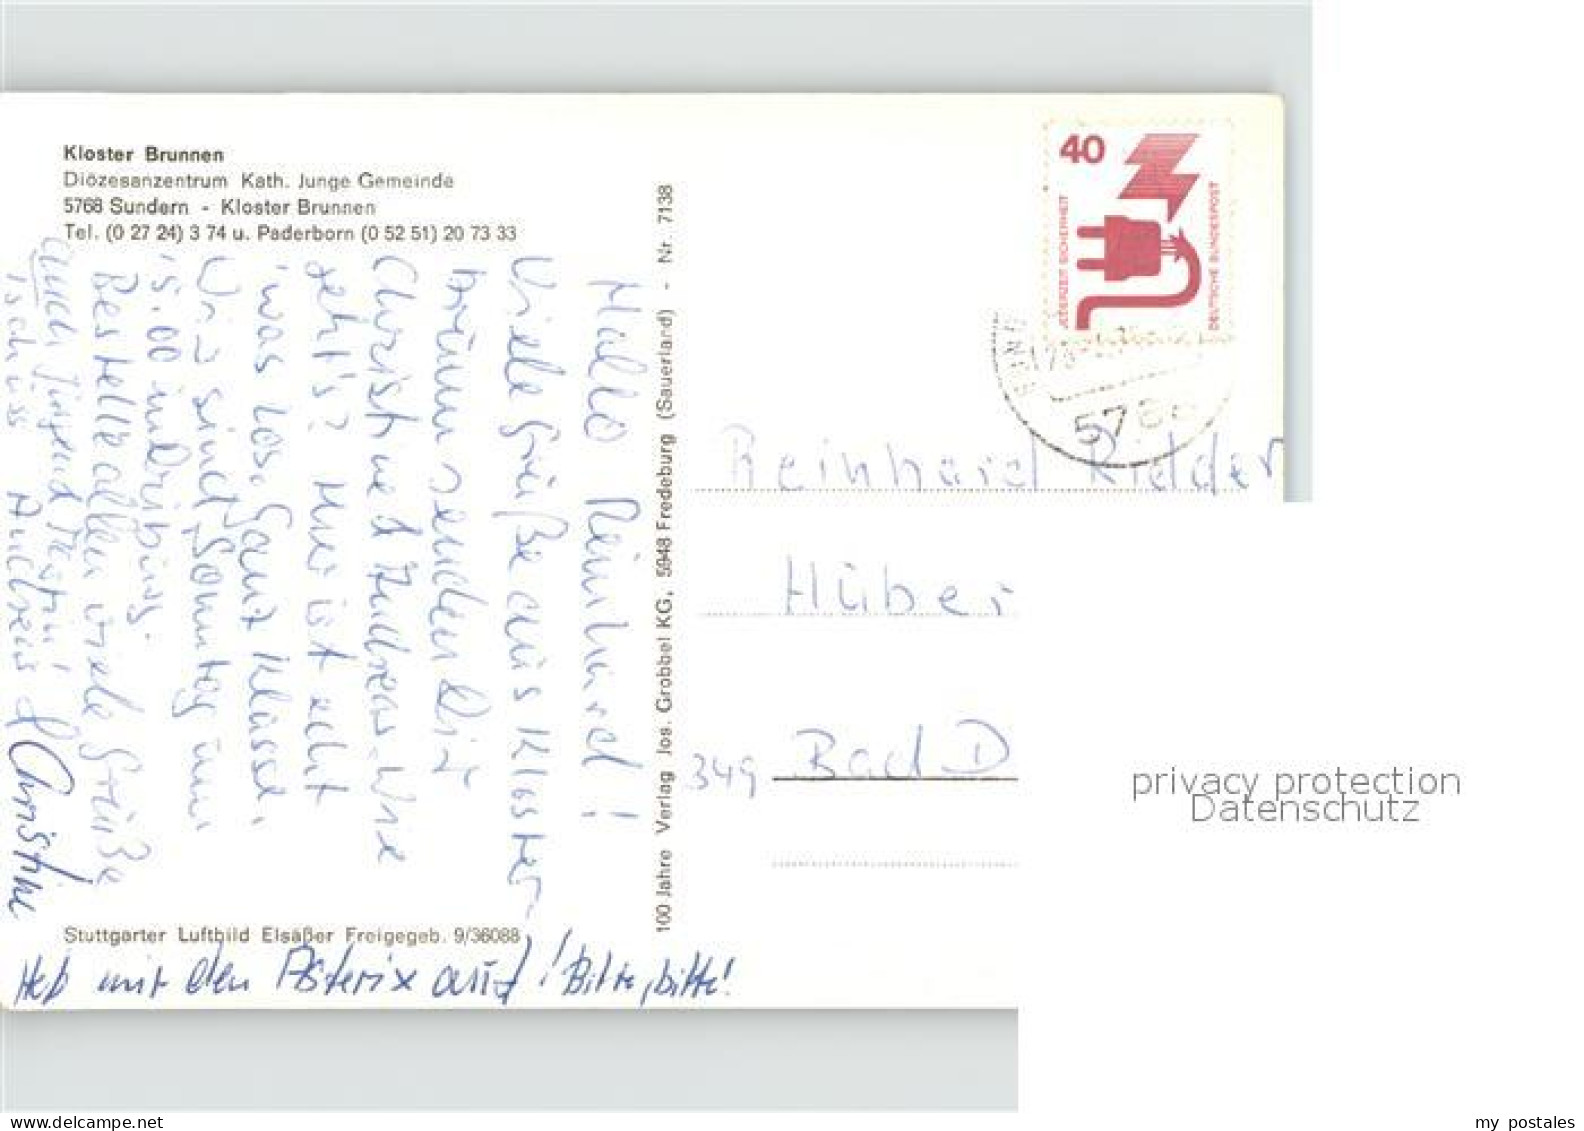 Kloster Brunnen
Diözesanzentrum Kath. Junge Gemeinde
5768 Sundern - Kloster Brunnen
Tel. (0 27 24) 3 74 u. Paderborn (0 52 51) 20 73 33
Hallo Reinhard!
Viele Grüße aus Kloster
Brunn senden Dir
Christine & Andreas. Wie
geht's? Hier ist echt
was los. Ganz Klasse.
Wir sind Sonntag um
15.00 in Dribing.
Bestelle allen viele Grüße
auch
Tschüss Andreas & Christine
Heb mit den Asterix auf! Bitte, bitte!
Stuttgarter Luftbild Elsäßer Freigegeb. 9/36088
100 Jahre Verlag Jos. Grobbel KG, 5948 Fredeburg (Sauerland) - Nr. 7138
40
JEDERZEIT SICHERHEIT
DEUTSCHE BUNDESPOST
576
Reinhard Ridder
Hüber
349 Bad D
privacy protection
Datenschutz
my postales